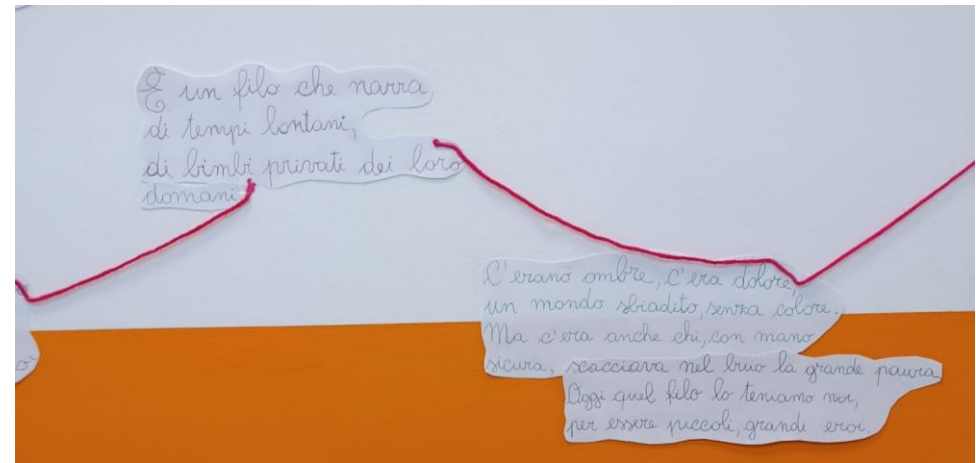 È un filo che narra
di tempi lontani,
di bimbi privati dei loro
domani.
C'erano ombre, c'era dolore,
un mondo sbiadito, senza colore.
Ma c'era anche chi, con mano
sicura, scacciava nel buio la grande paura.
Oggi quel filo lo teniamo noi,
per essere piccoli, grandi eroi.